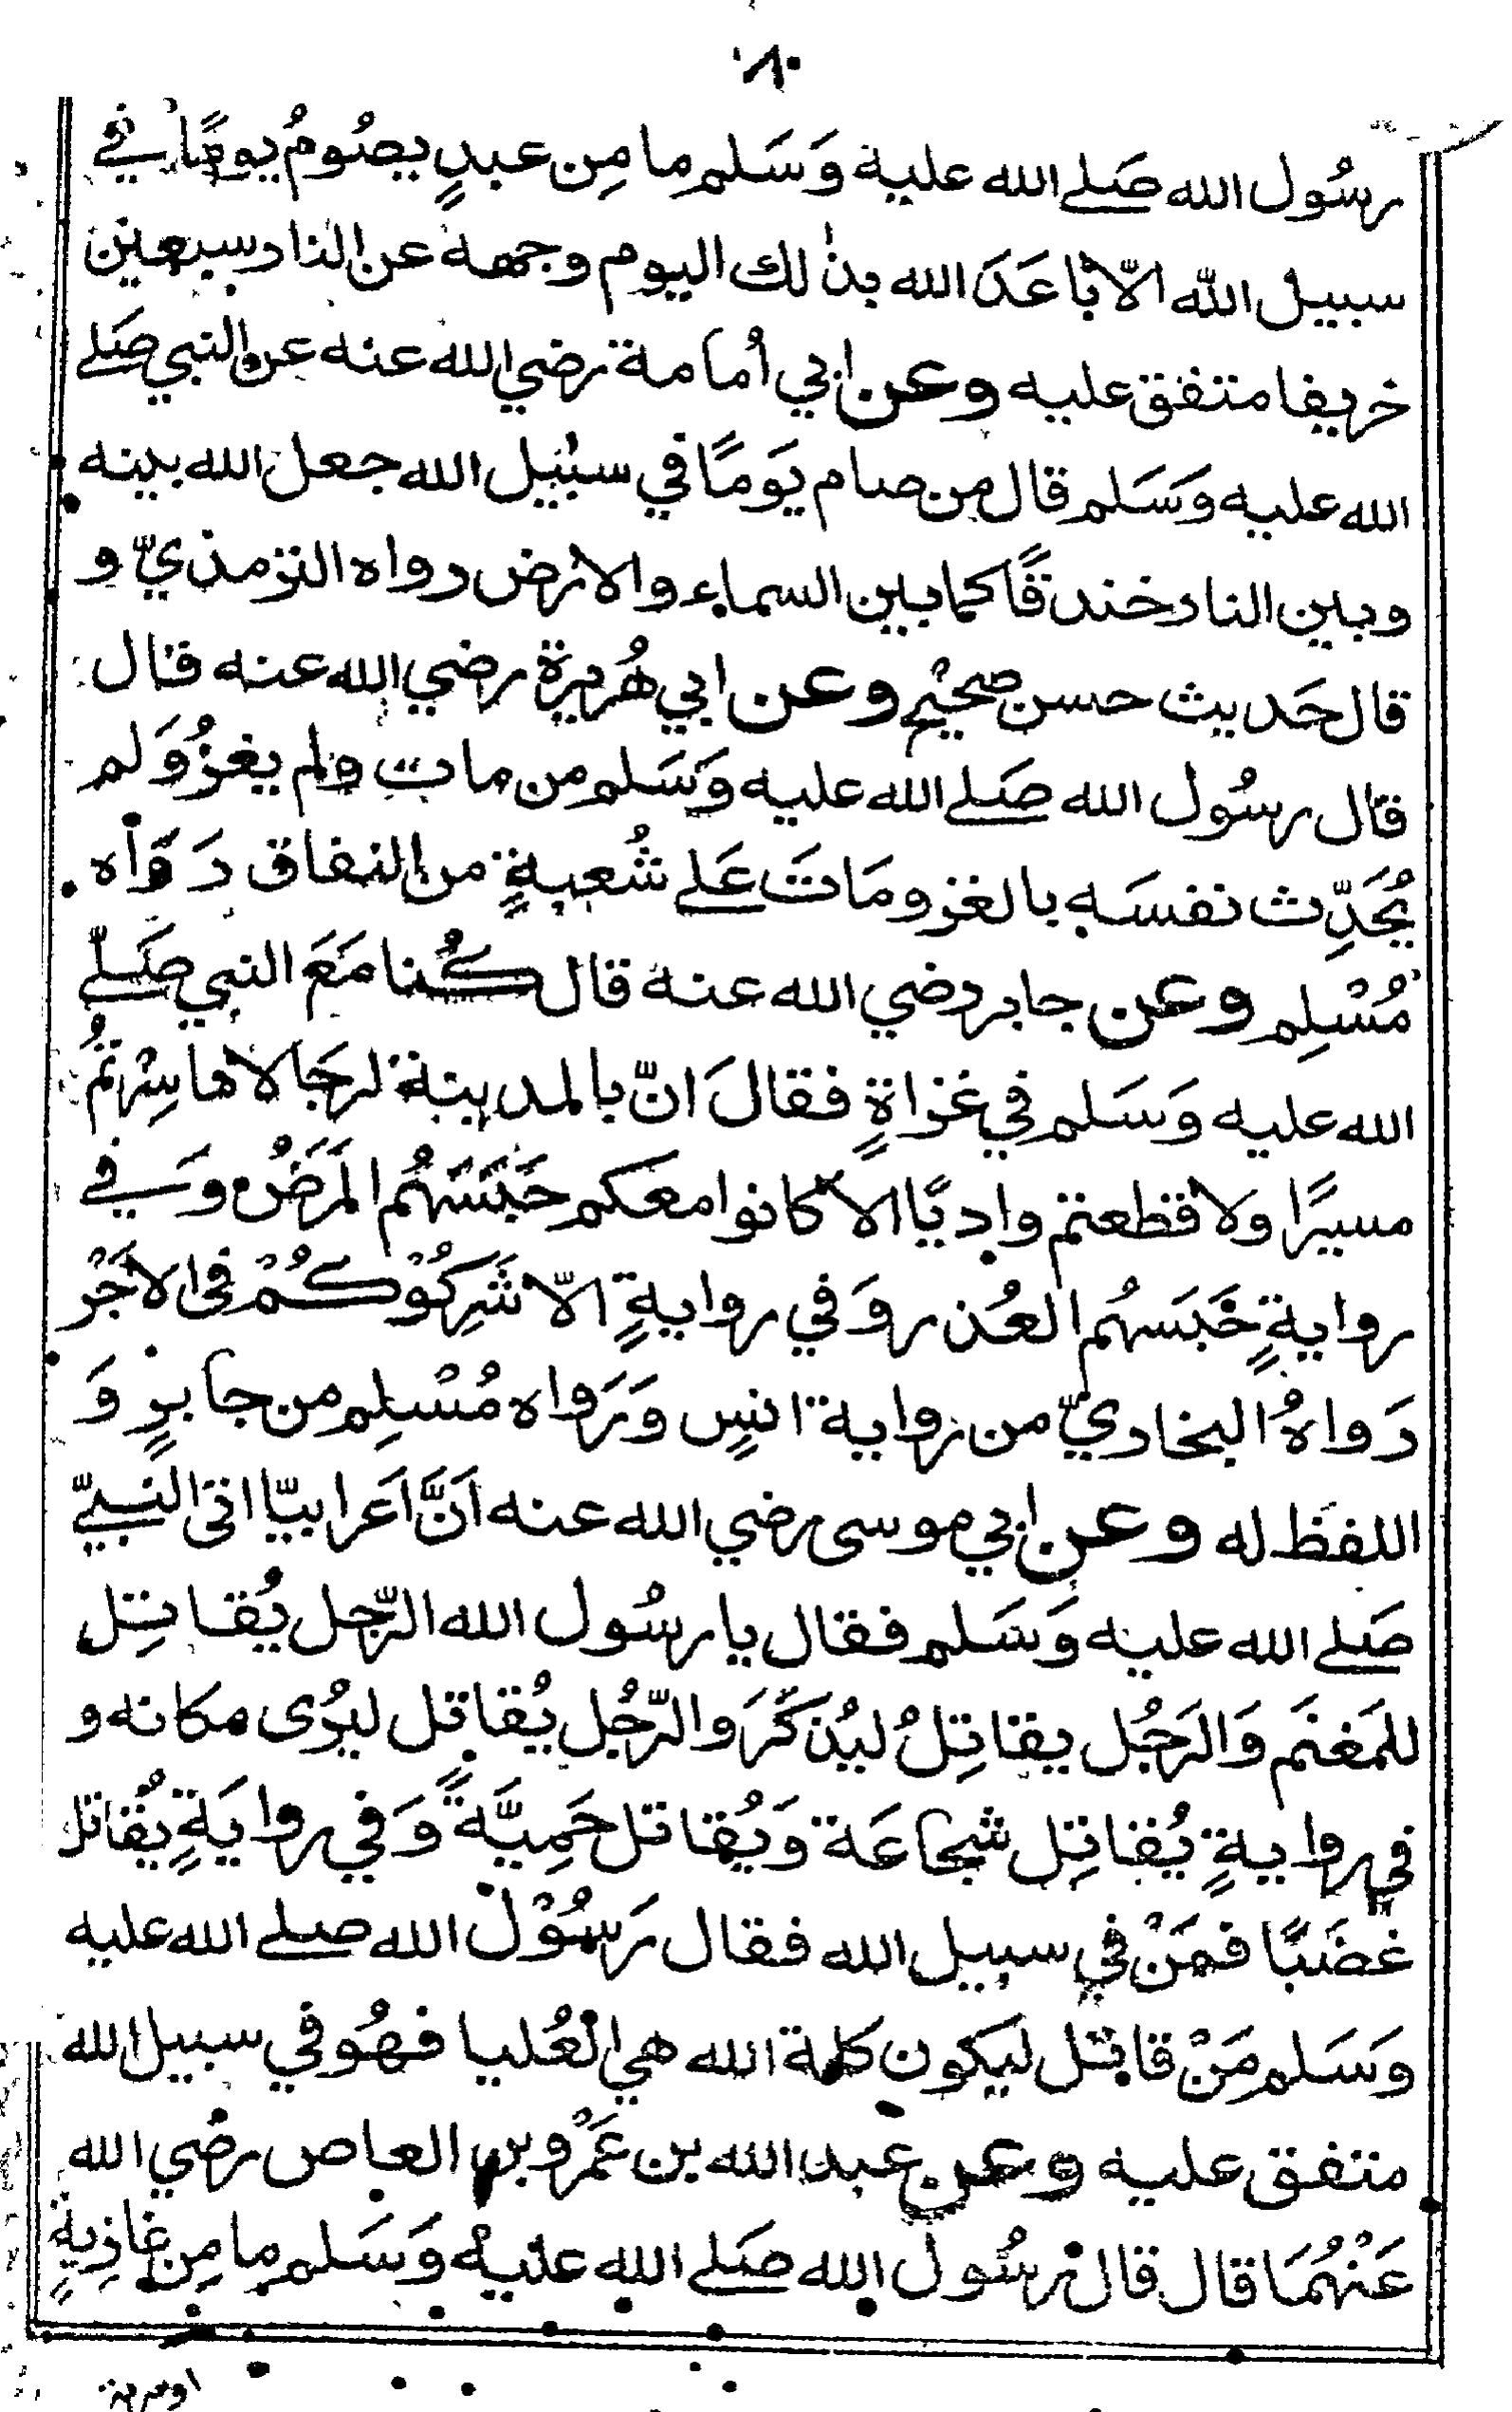 ١٨٠
رسُول الله صَلے الله عليه وَسَلم ما مِن عبدٍ يصُومُ يومًا في
سبيل الله الّا بَاعَدَ الله بذٰلك اليوم وجهه عن النار سبعين
خريفا متفق عليه وعن ابي أمامة رضي الله عنه عن النبي صَلے
الله عليه وَسَلم قال من صام يَومًا في سبيل الله جعل الله بينه
وبين النار خندقًا كما بين السماء والارض رواه الترمذيّ و
قال حَديث حسن صحيْح وعن ابي هُريرة رضي الله عنه قال
قال رسُول الله صَلے الله عليه وَسَلم من مات ولم يغزُ وَلم
يُحَدِّث نفسَه بالغزو مَاتَ عَلے شُعبةٍ من النفاق رَوَاه
مُسْلِم وعن جابر رضي الله عنه قال كُنا مَعَ النبي صَلّے
الله عليه وَسَلم في غزاةٍ فقالَ انّ بالمدينة لرجَالا ما سِرْتُمُ
مسيرًا ولا قطعتم واديًا الا كانوا معكم حَبَسَهُم المَرَضُ وَفي
روايةٍ حَبَسَهُم العُذر وَفي روايةٍ الّا شَرِكُوْكُمْ في الاجْر
رَواهُ البخاريّ من رواية انسٍ وَرَواه مُسْلِم من جابرٍ وَ
اللفظ له وعن ابي موسى رضي الله عنه اَنَّ اَعرابيّا اتى النبيّ
صَلے الله عليه وَسَلم فقال يا رسُول الله الرّجل يُقاتِل
للمَغنَم وَالرَجُل يقاتِلُ ليُذكَرَ والرّجُل يُقاتِل ليُرى مكانه و
في روايةٍ يُقاتِل شجاعَة وَيُقاتل حَمِيَّةً وَفي روايَةٍ يُقاتل
غضَبًا فمَنْ في سبيل الله فقال رَسُوْل الله صلے الله عليه
وَسَلم مَنْ قاتل ليَكون كلمة الله هي الْعُليا فهُو في سبيل الله
متفق عليه وعن عبد الله بن عَمْرو بن العاص رضي الله
عَنْهُمَا قال قال رسُول الله صَلے الله عليه وَسَلم ما مِن غازيةٍ
او سرية